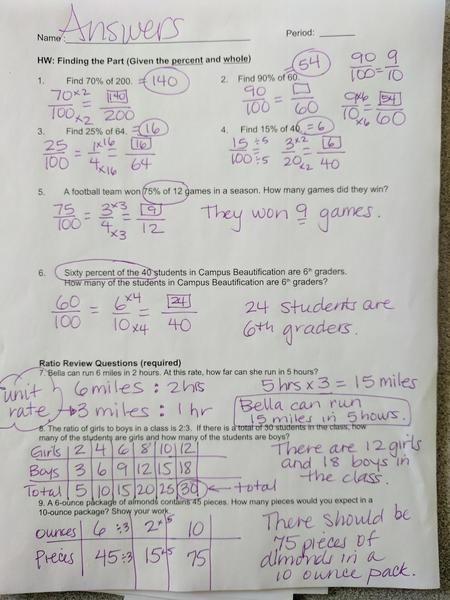 Name: Answers Period:
HW: Finding the Part (Given the percent and whole)
1. Find 70% of 200. = 140
70/100 ×2/×2 = 140/200
2. Find 90% of 60. 54
90/100 = □/60
90/100 = 9/10
9×6/10×6 = 54/60
3. Find 25% of 64. = 16
25/100 = 1×16/4×16 = 16/64
4. Find 15% of 40. = 6
15÷5/100÷5 = 3×2/20×2 = 6/40
5. A football team won 75% of 12 games in a season. How many games did they win?
75/100 = 3×3/4×3 = 9/12
They won 9 games.
6. Sixty percent of the 40 students in Campus Beautification are 6th graders.
How many of the students in Campus Beautification are 6th graders?
60/100 = 6×4/10×4 = 24/40
24 students are
6th graders.
Ratio Review Questions (required)
7. Bella can run 6 miles in 2 hours. At this rate, how far can she run in 5 hours?
unit rate
6 miles : 2 hrs
3 miles : 1 hr
5 hrs x 3 = 15 miles
Bella can run
15 miles in 5 hours.
8. The ratio of girls to boys in a class is 2:3. If there is a total of 30 students in the class, how
many of the students are girls and how many of the students are boys?
Girls 2 4 6 8 10 12
Boys 3 6 9 12 15 18
Total 5 10 15 20 25 30 ← total
There are 12 girls
and 18 boys in
the class.
9. A 6-ounce package of almonds contains 45 pieces. How many pieces would you expect in a
10-ounce package? Show your work.
ounces 6 ÷3 2 ×5 10
Pieces 45 ÷3 15 ×5 75
There should be
75 pieces of
almonds in a
10 ounce pack.